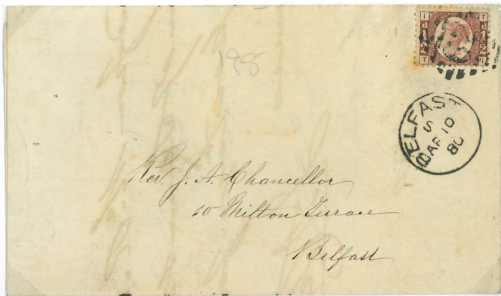 198
BELFAST
S
AP 10
80
Rev. J. A. Chancellor
10 Milton Terrace
Belfast